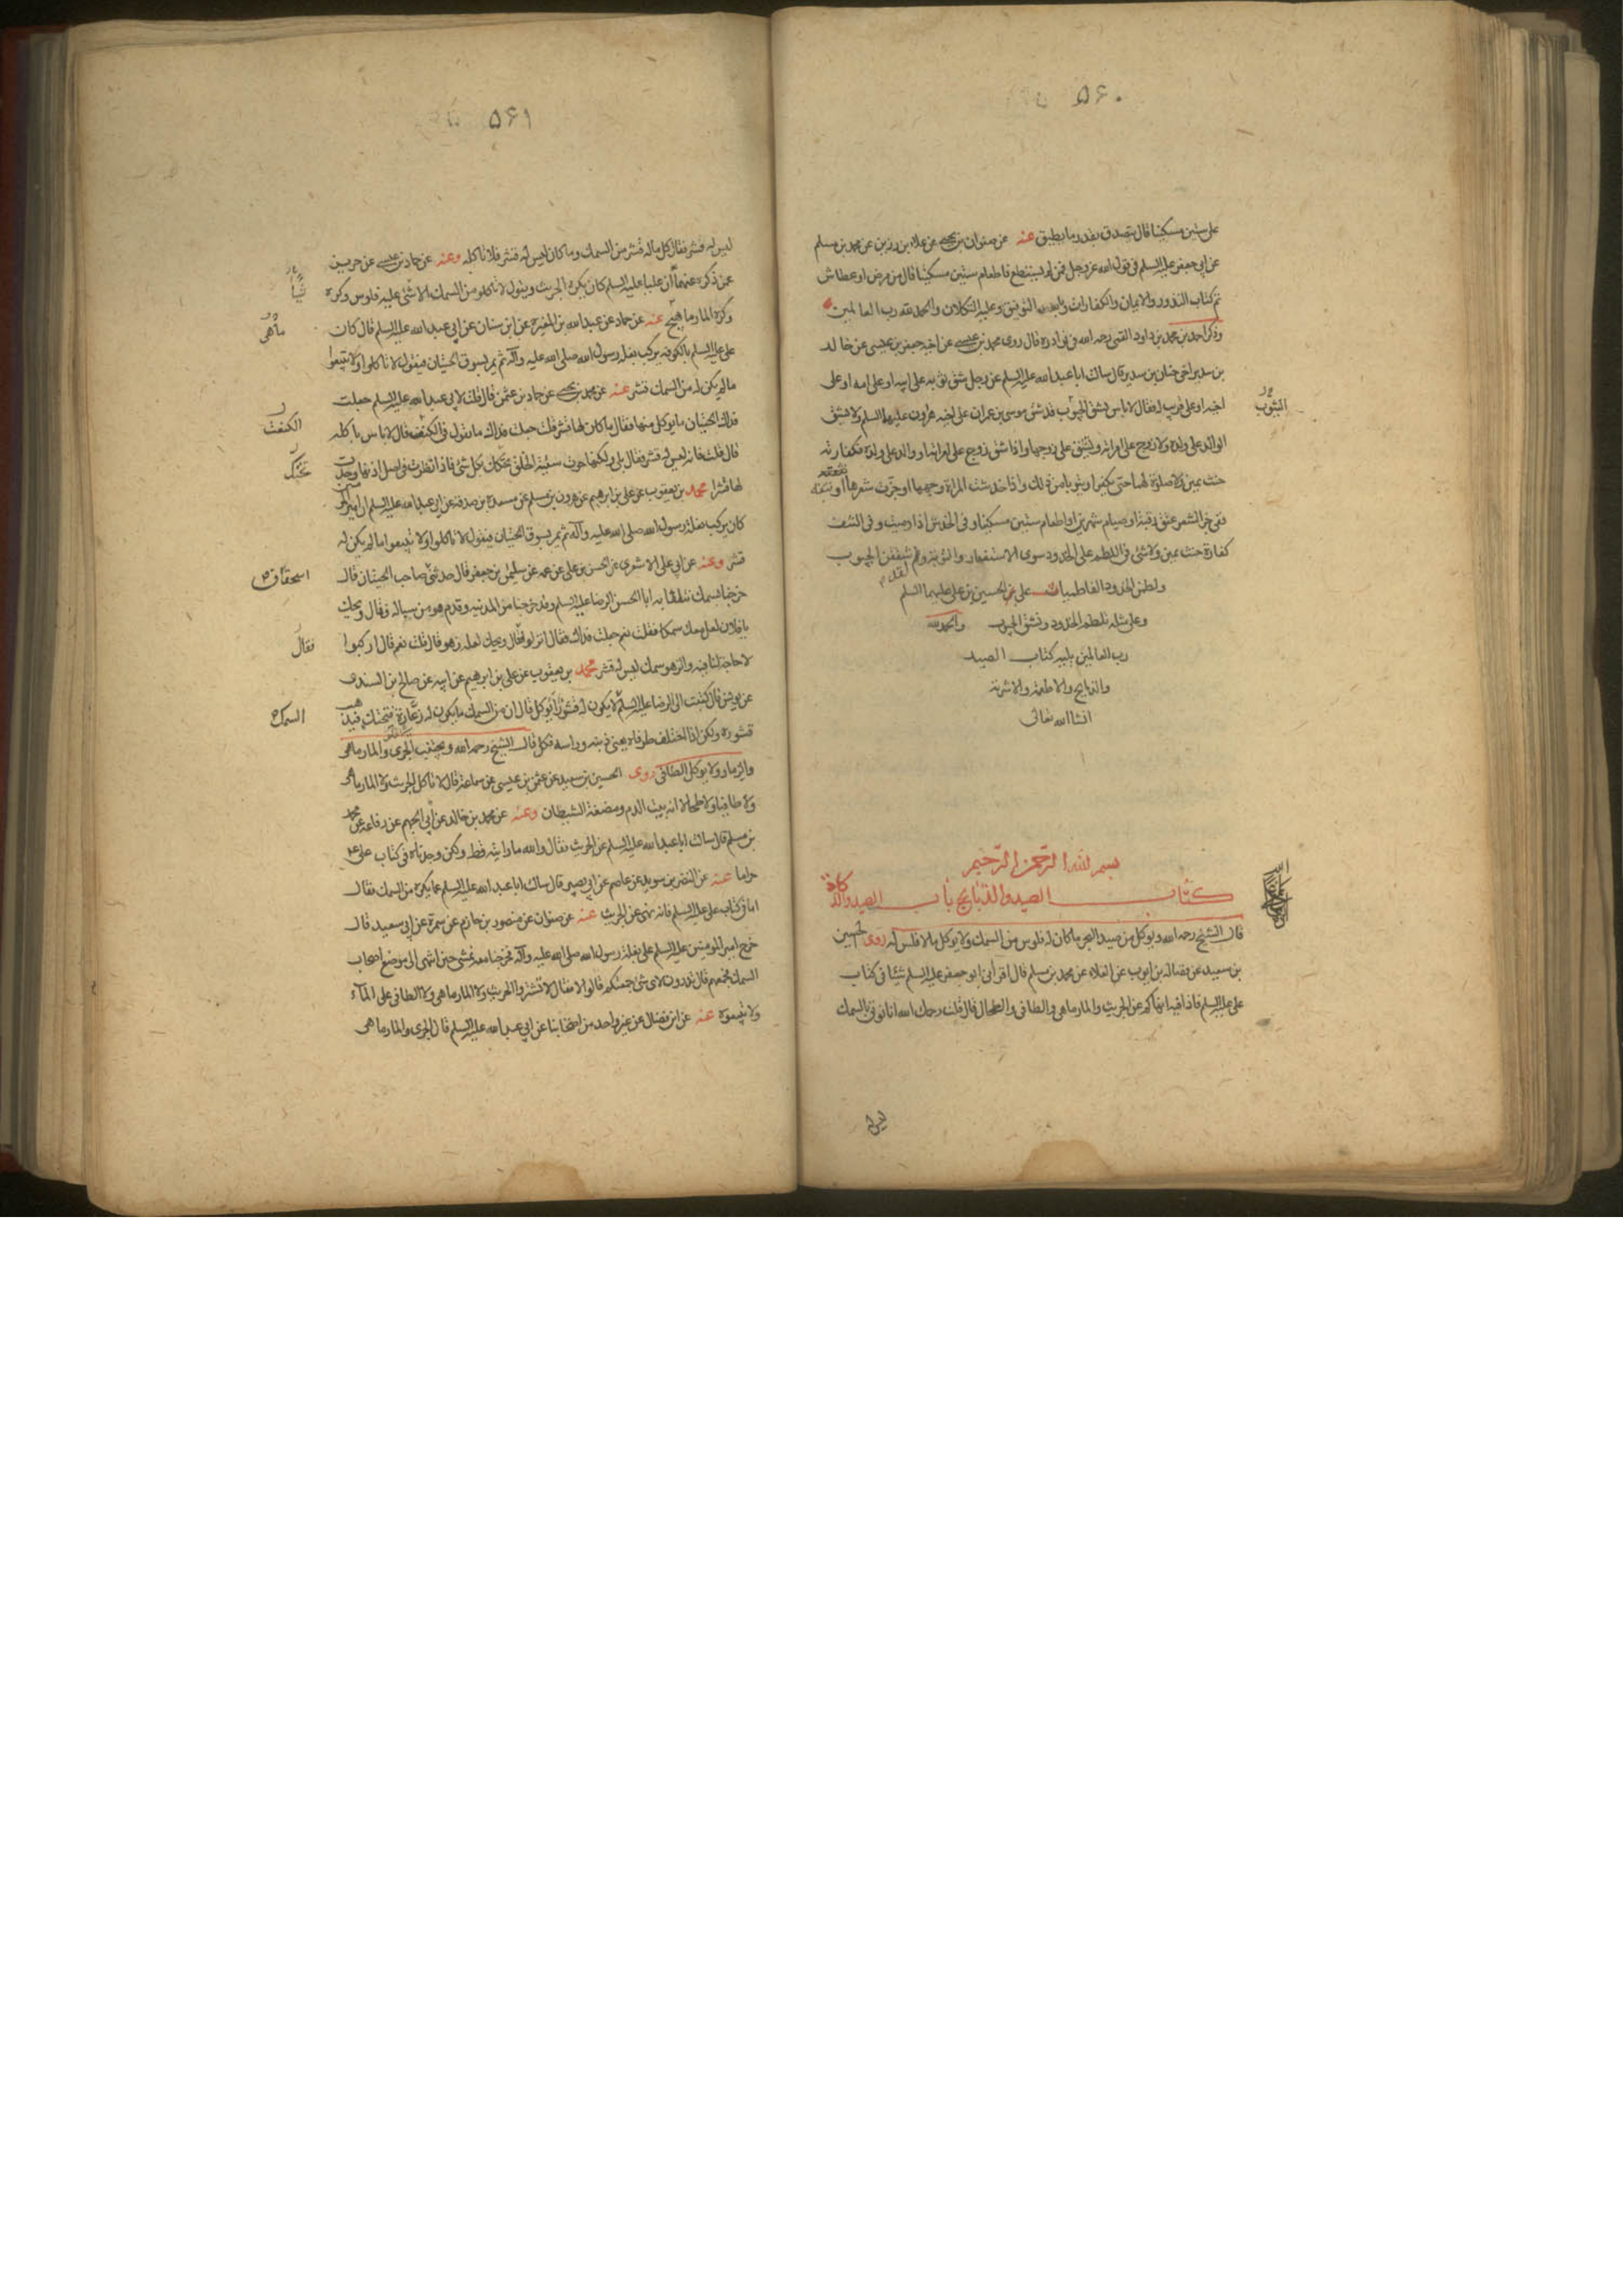 ۵۶۰
على ستين مسكينا قال يتصدق بقدر ما يطيق عنه عن صفوان بن يحيى عن علاء بن رزين عن محمد بن مسلم
عن ابي جعفر عليه السلم في قول الله عز وجل فمن لم يستطع فاطعام ستين مسكينا قال من مرض او عطاش
تم كتاب النذور والايمان والكفارات وبالله التوفيق وعليه التكلان والحمد لله رب العالمين
وذكر احمد بن محمد بن داود القمي رحمه الله في نوادره قال روى محمد بن عيسى عن اخيه جعفر بن عيسى عن خالد
بن سدير اخي حنان بن سدير قال سالت ابا عبد الله عليه السلم عن رجل شق ثوبه على ابيه او على امه او على
اخيه او على قريب له فقال لا باس بشق الجيوب قد شق موسى بن عمران على اخيه هرون عليهما السلم ولا يشق
الوالد على ولده ولا زوج على امراته وتشق على زوجها واذا شق زوج على امراته او والد على ولده فكفارته
حنث يمين ولا صلوة لهما حتى يكفرا ويتوبا من ذلك واذا خدشت المراة وجهها او جزت شعرها او نتفته
ففي جز الشعر عتق رقبة او صيام شهرين او اطعام ستين مسكينا وفي الخدش اذا دميت وفي النتف
كفارة حنث يمين ولا شئ في اللطم على الخدود سوى الاستغفار والتوبة ولقد شققن الجيوب
ولطمن الخدود الفاطميات على الحسين بن علي عليهما السلم
وعلى مثله تلطم الخدود وتشق الجيوب والحمد لله
رب العالمين يليه كتاب الصيد
والذبايح والاطعمة والاشربة
انشا الله تعالى
بسم الله الرحمن الرحيم
كتاب الصيد والذبايح باب الصيد والذكاة
قال الشيخ رحمه الله ويوكل من صيد البحر ما كان له فلوس من السمك ولا يوكل ما لا فلس له روى الحسين
بن سعيد عن فضالة بن ايوب عن العلاء عن محمد بن مسلم قال اقرأني ابو جعفر عليه السلم شيئا في كتاب
علي عليه السلم فاذا فيه انهاكم عن الجريث والمارماهي والطافي والطحال قال قلت رحمك الله انا نوتى بالسمك
ليس له
۵۶۱
ليس له قشر فقال كل ماله قشر من السمك وما كان ليس له قشر فلا تاكله وعنه عن حماد بن عيسى عن حريز
عمن ذكره عنهما ان عليا عليه السلم كان يكره الجريث ويقول لا تاكلو من السمك الا شئ عليه فلوس وكره
وكره المارماهيج عنه عن حماد عن عبد الله بن المغيرة عن ابن سنان عن ابي عبد الله عليه السلم قال كان
علي عليه السلم بالكوفة يركب بغلة رسول الله صلى الله عليه وآله ثم يمر بسوق الحيتان فيقول لا تاكلوا ولا تبيعوا
مالم يكن له من السمك قشر عنه عن محمد بن يحيى عن حماد بن عثمن قال قلت لابي عبد الله عليه السلم جعلت
فداك الحيتان ما يوكل منها فقال ما كان لها قشر قلت جعلت فداك ما تقول في الكنعت فقال لا باس باكله
قال قلت فانه ليس له قشر فقال بلى ولكنها حوت سيئة الخلق تحتك بكل شئ فاذا نظرت في اصل اذنها وجدت
لها قشرا محمد بن يعقوب عن علي بن ابرهيم عن هرون بن مسلم عن مسعدة بن صدقة عن ابي عبد الله عليه السلم ان امير
كان يركب بغلة رسول الله صلى الله عليه وآله ثم يمر بسوق الحيتان فيقول لا تاكلوا ولا تبيعوا ما لم يكن له
قشر وعنه عن ابي علي الاشعري عن الحسن بن علي عن عمه عن سليمن بن جعفر قال حدثني صاحب الحيتان قال
خرجنا بسمك نتلقى به ابا الحسن الرضا عليه السلم وقد خرجنا من المدينة وقدم هو من سباله فقال ويحك
يا فلان لعل معك سمكا فقلت نعم جعلت فداك فقال انزلو فقال ويحك لعله زهو قال قلت نعم قال اركبوا
لا حاجة لنا فيه والزهو سمك ليس له قشر محمد بن يعقوب عن علي بن ابرهيم عن ابيه عن صالح بن السندي
عن يونس قال كتبت الى الرضا عليه السلم السمك لا يكون له قشور ايوكل قال ان من السمك ما يكون له زعارة فتحتك فيذهب
قشوره ولكن اذا اختلف طرفاه يعني ذنبه وراسه فكل قال الشيخ رحمه الله ويجتنب الجري والمارماهي
والزمار ولا يوكل الطافي روى الحسين بن سعيد عن عثمن بن عيسى عن سماعة قال لا تاكل الجريث ولا المارماهي
ولا طافيا ولا طحالا لانه بيت الدم ومضغة الشيطان وعنه عن محمد بن خالد عن ابي الجهم عن رفاعة عن محمد
بن مسلم قال سالت ابا عبد الله عليه السلم عن الجريث فقال والله ما رايته قط ولكن وجدناه في كتاب علي ع
حراما عنه عن النضر بن سويد عن عاصم عن ابي بصير قال سالت ابا عبد الله عليه السلم عما يكره من السمك فقال
اما في كتاب علي عليه السلم فانه نهى عن الجريث عنه عن صفوان عن منصور بن حازم عن سمرة عن ابي سعيد قال
خرج امير المومنين عليه السلم على بغلة رسول الله صلى الله عليه وآله فخرجنا معه نمشي حتى انتهى الى موضع اصحاب
السمك فجمعهم قال تدرون لاى شئ جمعتكم قالوا لا فقال لا تشتروا الجريث ولا المارماهي ولا الطافي على الماء
ولا تبيعوه عنه عن ابن فضال عن غير واحد من اصحابنا عن ابي عبد الله عليه السلم قال الجري والمارماهي
شيئا
ماهى
الكنعت
تحتك
اسحق
فقال
السمك